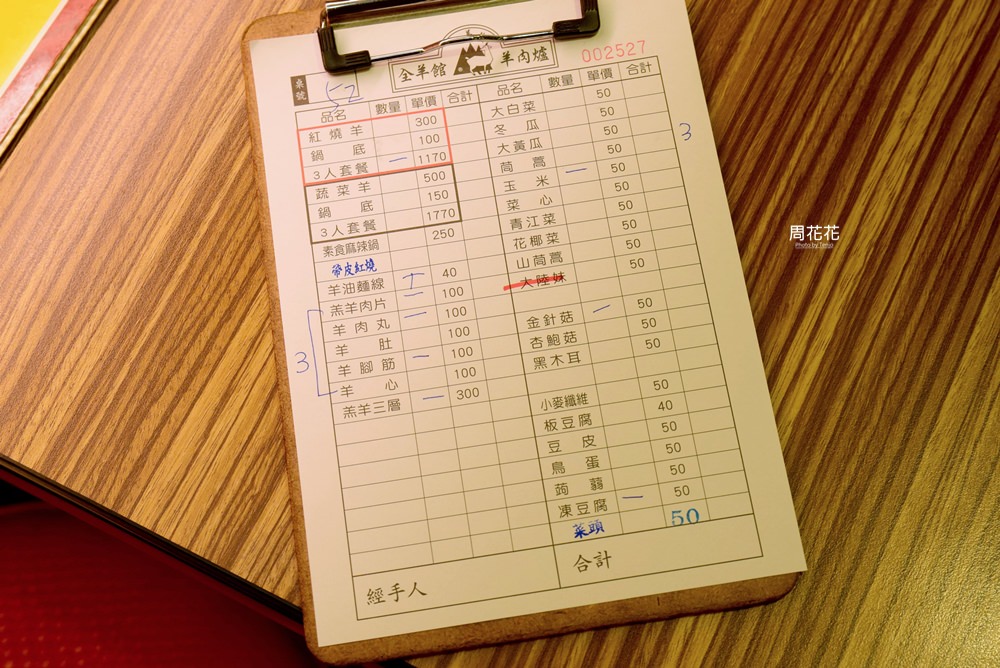 全羊館 羊肉爐
002527
桌號 52
品名 數量 單價 合計
紅燒羊 300
鍋底 100
3人套餐 一 1170
蔬菜羊 500
鍋底 150
3人套餐 1770
素食麻辣鍋 250
帶皮紅燒
羊油麵線 40
羔羊肉片 100
羊肉丸 一 100
羊肚 100
羊腳筋 一 100
羊心 100
羔羊三層 一 300
3
品名 數量 單價 合計
大白菜 50
冬瓜 50
大黃瓜 50
茼蒿 50
玉米 一 50
菜心 50
青江菜 50
花椰菜 50
山茼蒿 50
大陸妹 50
金針菇 一 50
杏鮑菇 50
黑木耳 50
小麥纖維 50
板豆腐 40
豆皮 50
鳥蛋 50
蒟蒻 50
凍豆腐 一 50
菜頭 50
3
經手人
合計
周花花
Photo by Tenjo